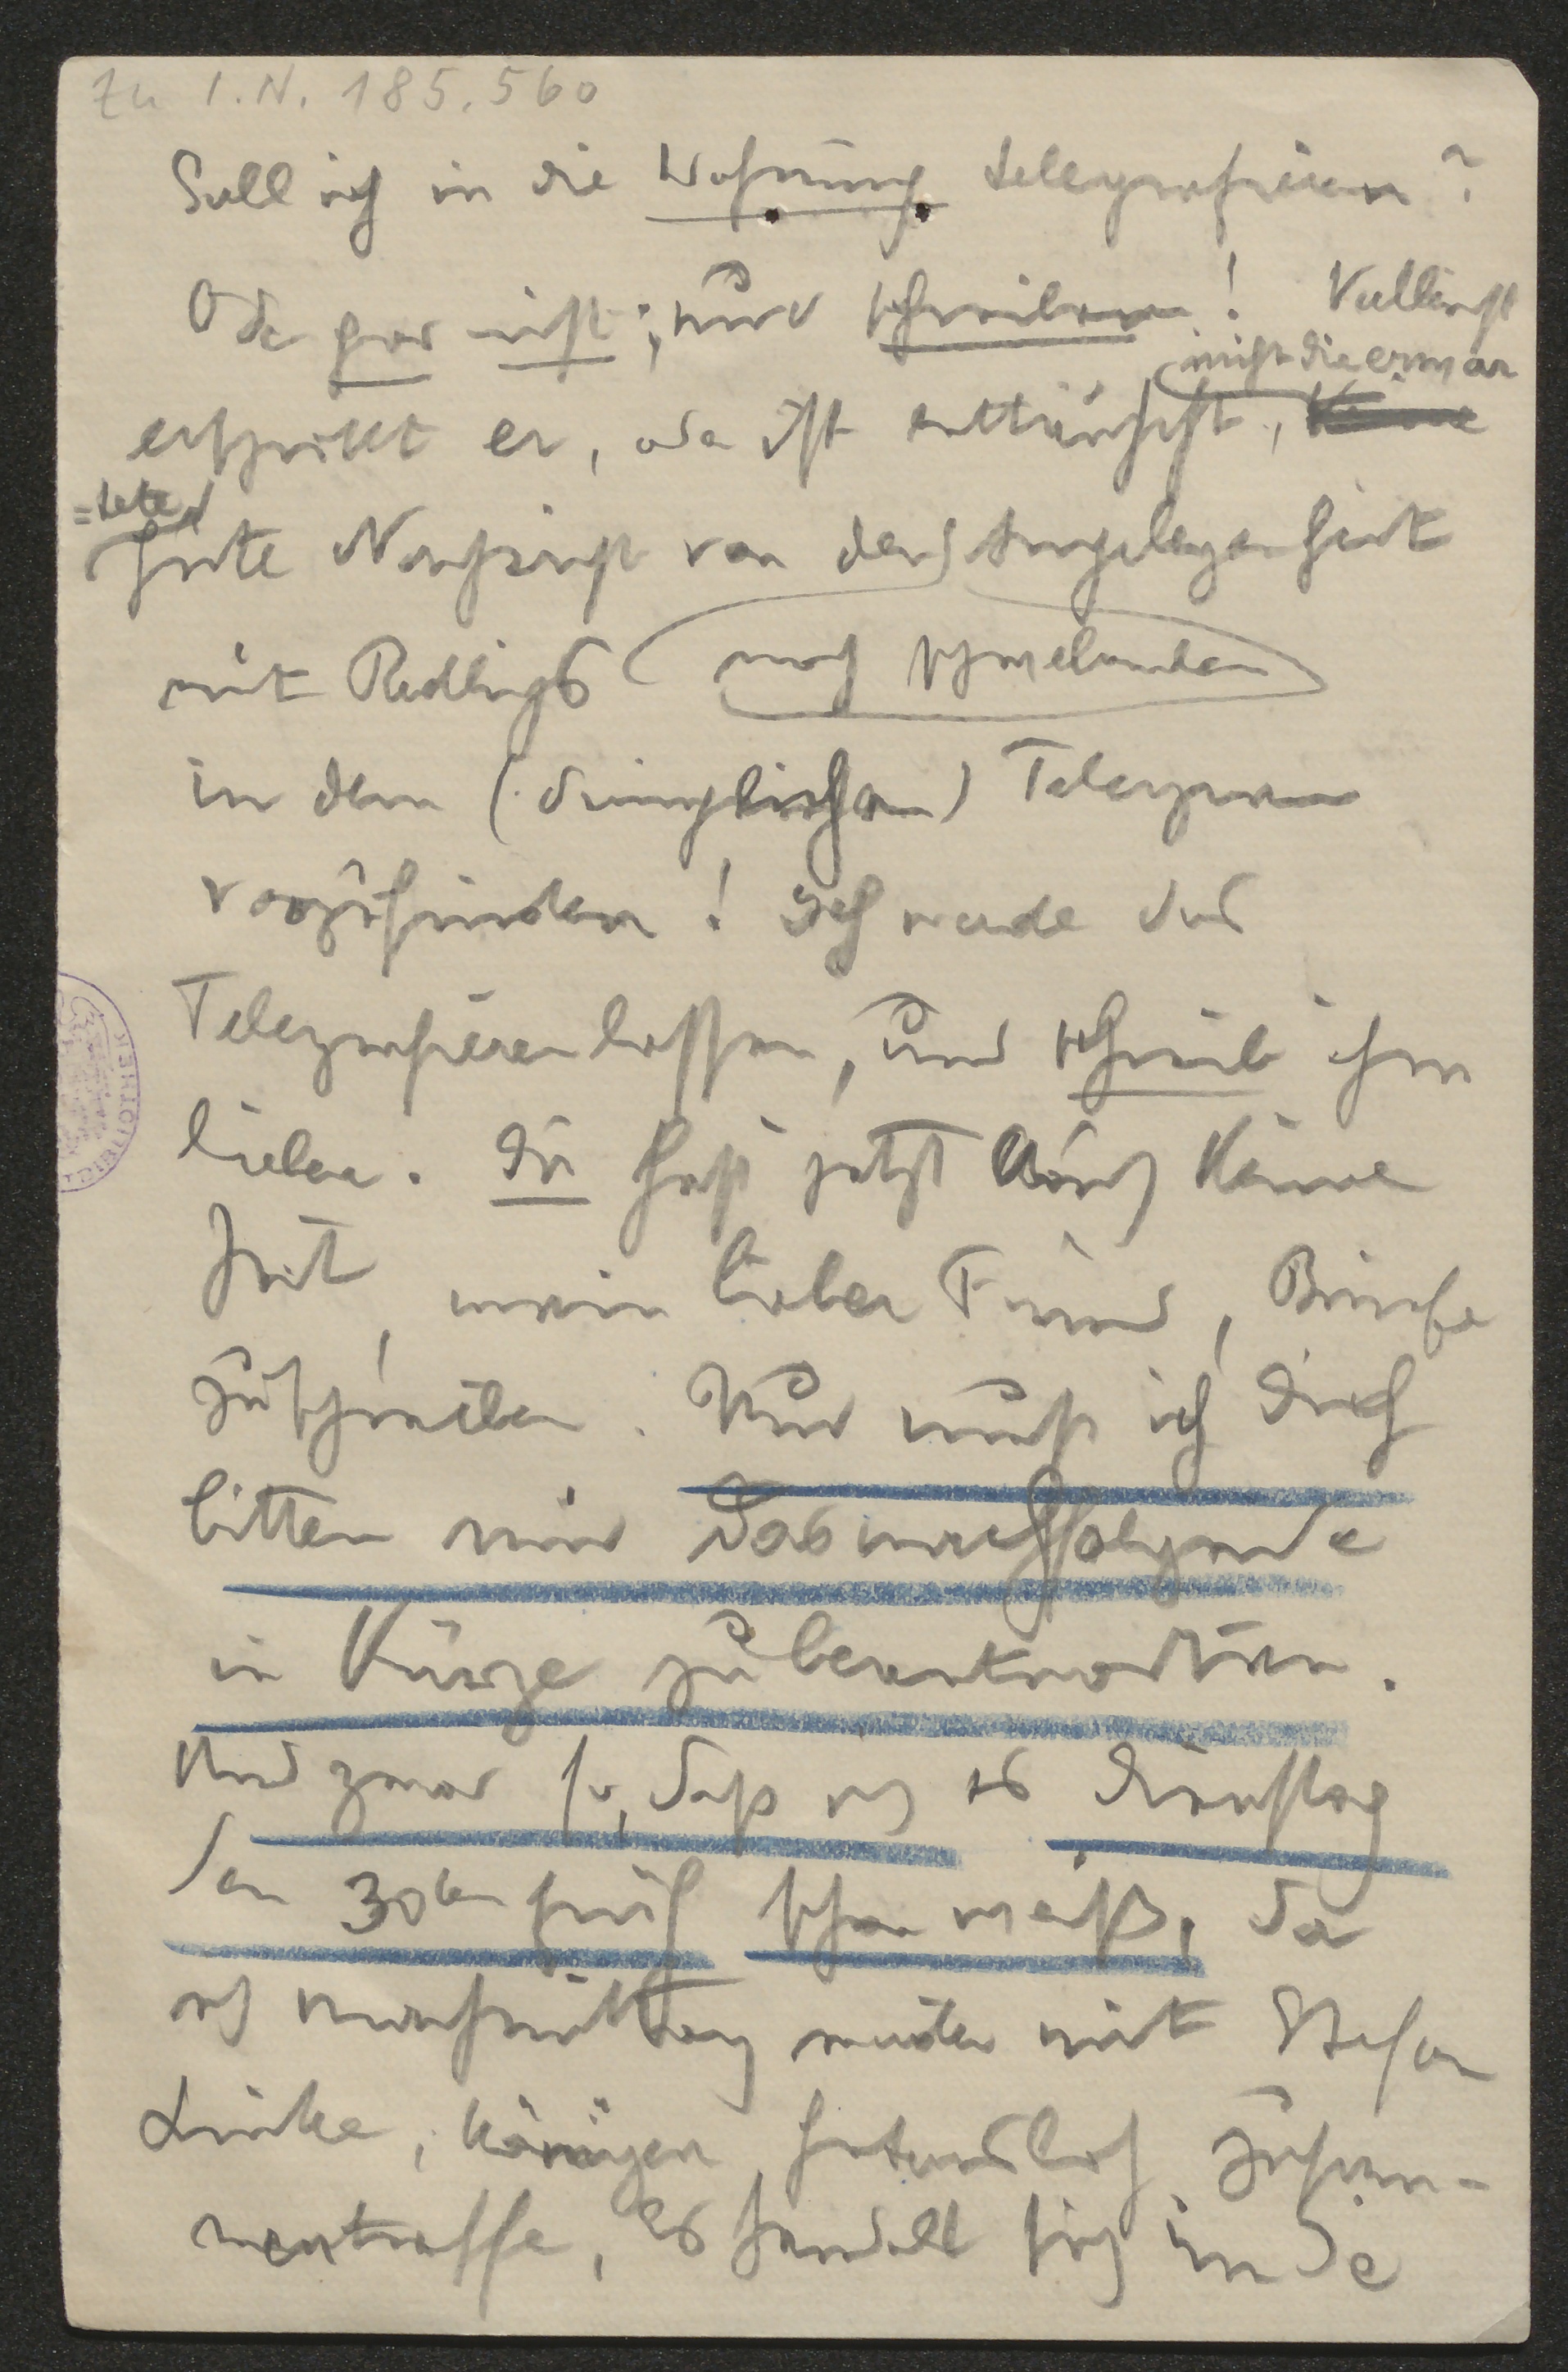 Zu I.N. 185.560
Soll ich in die Wohnung telegrafieren?
Oder gar nicht; nur schreiben! Vielleicht
erschrickt er, oder ist enttäuscht, nicht die erwar
=tete
gute Nachricht von der Angelegenheit
mit Redlichs noch schwebenden
in dem (dringlichen) Telegramm
vorzufinden! Ich werde das
Telegrafieren lassen, und schreib ihm
lieber. Du hast jetzt auch keine
Zeit, mein lieber Freund, Briefe
zu schreiben. Nur muß ich Dich
bitten mir das nachfolgende
in Kürze zu beantworten.
Und zwar so, daß ich es Dienstag
den 30ten früh schon weiß, da
ich nachmittag wieder mit Stefan
Linke, Körügen, hotendlich zusam-
mentreffe, es handelt sich um de